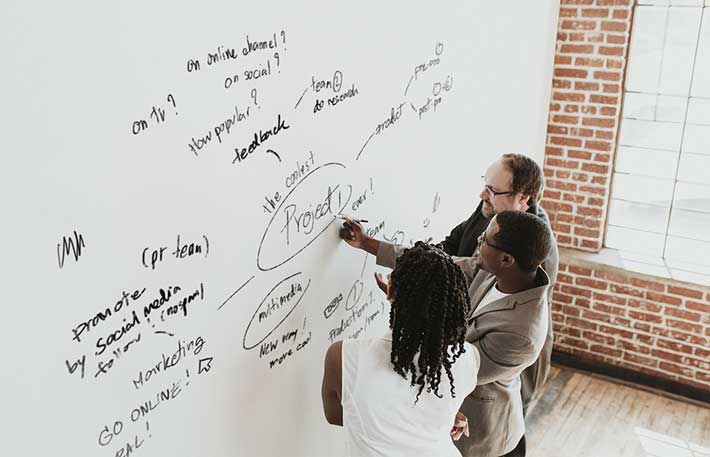 on online channel?
on social?
on tv?
How popular?
feedback
team ②
do research
pre-pro
post.pr
product
the coolest
Project
ever!
(pr team)
promote
by social media
follow! (no spam)
Marketing
GO ONLINE!
multimedia
New way!
more cam
①
Production